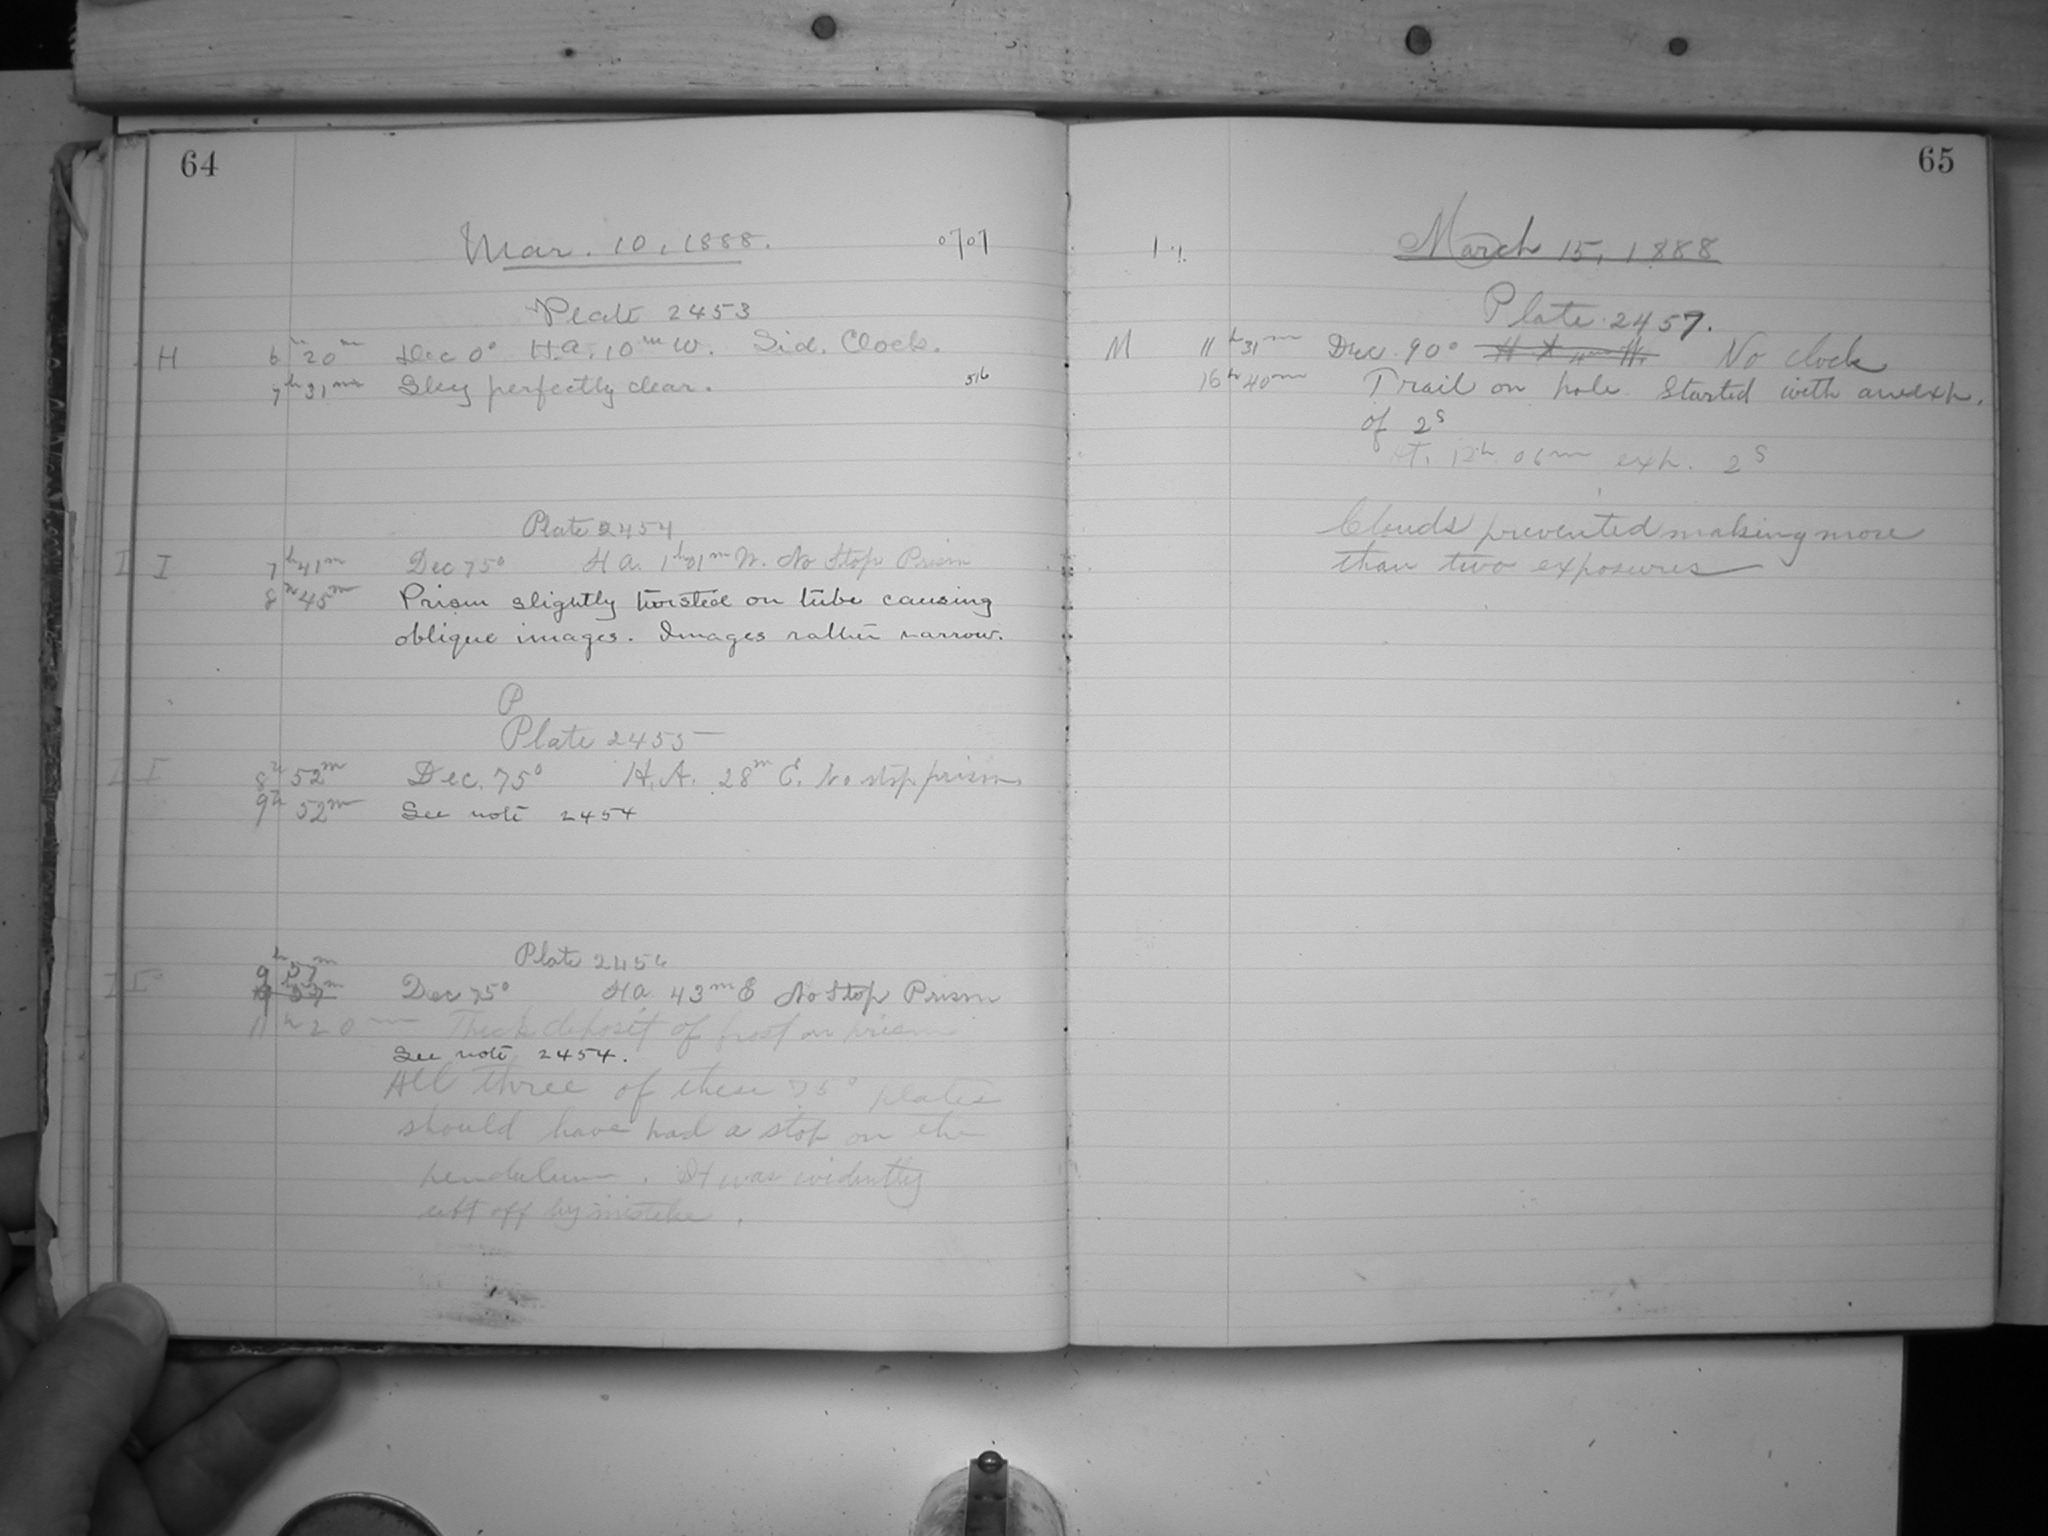 64
Mar. 10, 1888. 0707
Plate 2453
H 6h 20m Dec 0° H.A. 10m W. Sid. Clock.
7h 31m Sky perfectly clear. 516
Plate 2454
I I 7h 41m Dec 75° H A. 1h 01m W. No Stop Prism
8h 45m Prism slightly twisted on tube causing
oblique images. Images rather narrow.
P
Plate 2455
I I 8h 52m Dec. 75° H.A. 28m E. No stop prism
9h 52m See note 2454
Plate 2456
9h 57m
I I Dec 75° H A 43m E No Stop Prism
11h 20m Thick deposit of frost on prism
See note 2454.
All three of these 75° plates
should have had a stop on the
pendulum. It was evidently
left off by mistake.
65
March 15, 1888
Plate 2457.
M 11h 31m Dec. 90° No clock
16h 40m Trail on pole Started with an exp.
of 2s
At. 12h 06m exp. 2s
Clouds prevented making more
than two exposures